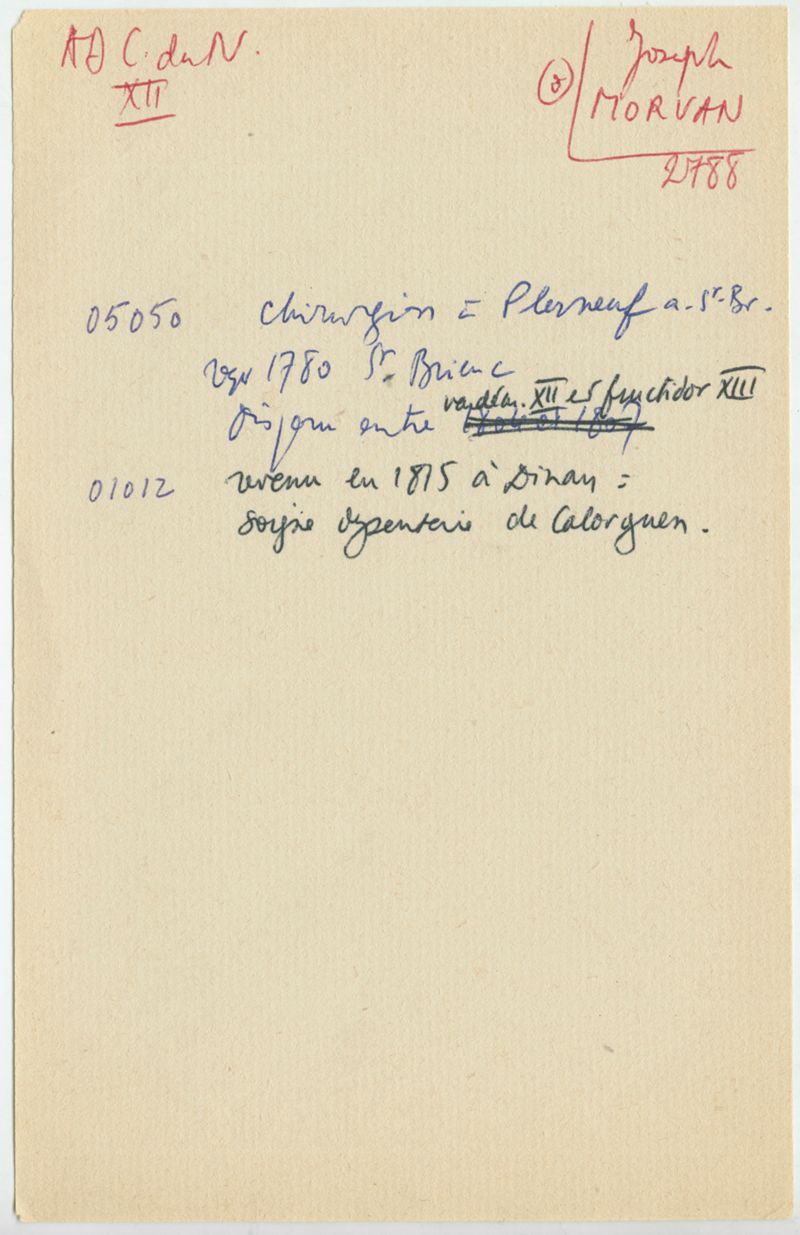 AD C. du N.
XII
Joseph
MORVAN
2788
05050 chirurgien = Plerneuf a. St-Br.
1780 St. Brieuc
vendém. XII et fructidor XIII
Disparu entre
01012 revenu en 1815 à Dinan =
soigne dysenterie de Calorguen.